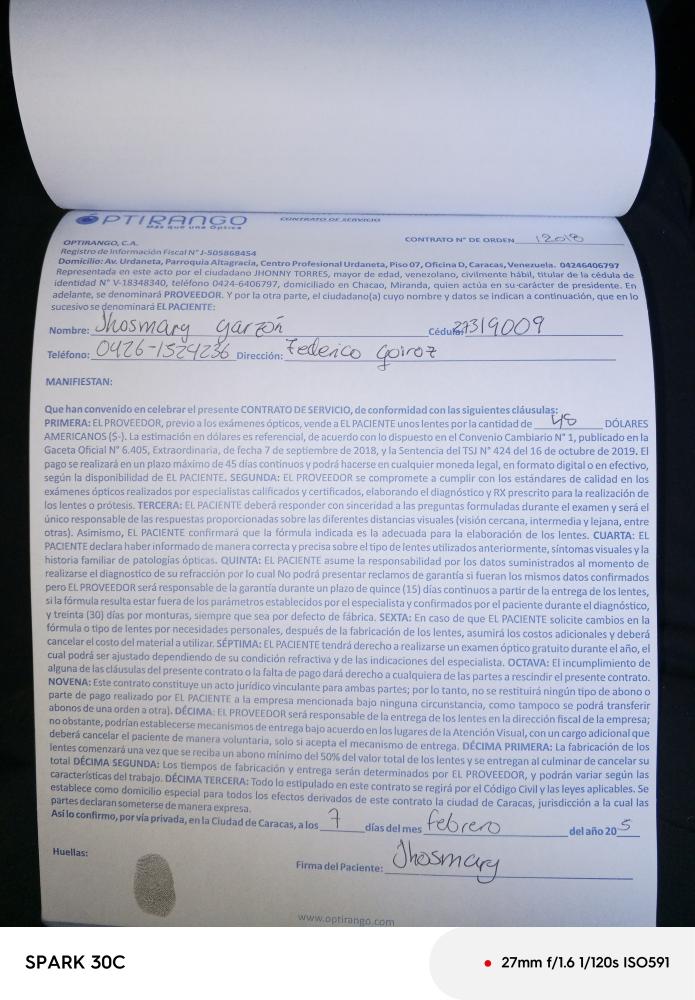 OPTIRANGO
Más que una Óptica
CONTRATO DE SERVICIO
OPTIRANGO, C.A.
CONTRATO N° DE ORDEN 12018
Registro de Información Fiscal N° J-505868454
Domicilio: Av. Urdaneta, Parroquia Altagracia, Centro Profesional Urdaneta, Piso 07, Oficina D, Caracas, Venezuela. 04246406797
Representada en este acto por el ciudadano JHONNY TORRES, mayor de edad, venezolano, civilmente hábil, titular de la cédula de
identidad N° V-18348340, teléfono 0424-6406797, domiciliado en Chacao, Miranda, quien actúa en su carácter de presidente. En
adelante, se denominará PROVEEDOR. Y por la otra parte, el ciudadano(a) cuyo nombre y datos se indican a continuación, que en lo
sucesivo se denominará EL PACIENTE:
Nombre: Jhosmary garzón Cédula: 27319009
Teléfono: 0426-1524236 Dirección: Federico Goiroz
MANIFIESTAN:
Que han convenido en celebrar el presente CONTRATO DE SERVICIO, de conformidad con las siguientes cláusulas:
PRIMERA: EL PROVEEDOR, previo a los exámenes ópticos, vende a EL PACIENTE unos lentes por la cantidad de 45 DÓLARES
AMERICANOS ($-). La estimación en dólares es referencial, de acuerdo con lo dispuesto en el Convenio Cambiario N° 1, publicado en la
Gaceta Oficial N° 6.405, Extraordinaria, de fecha 7 de septiembre de 2018, y la Sentencia del TSJ N° 424 del 16 de octubre de 2019. El
pago se realizará en un plazo máximo de 45 días continuos y podrá hacerse en cualquier moneda legal, en formato digital o en efectivo,
según la disponibilidad de EL PACIENTE. SEGUNDA: EL PROVEEDOR se compromete a cumplir con los estándares de calidad en los
exámenes ópticos realizados por especialistas calificados y certificados, elaborando el diagnóstico y RX prescrito para la realización de
los lentes o prótesis. TERCERA: EL PACIENTE deberá responder con sinceridad a las preguntas formuladas durante el examen y será el
único responsable de las respuestas proporcionadas sobre las diferentes distancias visuales (visión cercana, intermedia y lejana, entre
otras). Asimismo, EL PACIENTE confirmará que la fórmula indicada es la adecuada para la elaboración de los lentes. CUARTA: EL
PACIENTE declara haber informado de manera correcta y precisa sobre el tipo de lentes utilizados anteriormente, síntomas visuales y la
historia familiar de patologías ópticas. QUINTA: EL PACIENTE asume la responsabilidad por los datos suministrados al momento de
realizarse el diagnostico de su refracción por lo cual No podrá presentar reclamos de garantía si fueran los mismos datos confirmados
pero EL PROVEEDOR será responsable de la garantía durante un plazo de quince (15) días continuos a partir de la entrega de los lentes,
si la fórmula resulta estar fuera de los parámetros establecidos por el especialista y confirmados por el paciente durante el diagnóstico,
y treinta (30) días por monturas, siempre que sea por defecto de fábrica. SEXTA: En caso de que EL PACIENTE solicite cambios en la
fórmula o tipo de lentes por necesidades personales, después de la fabricación de los lentes, asumirá los costos adicionales y deberá
cancelar el costo del material a utilizar. SÉPTIMA: EL PACIENTE tendrá derecho a realizarse un examen óptico gratuito durante el año, el
cual podrá ser ajustado dependiendo de su condición refractiva y de las indicaciones del especialista. OCTAVA: El incumplimiento de
alguna de las cláusulas del presente contrato o la falta de pago dará derecho a cualquiera de las partes a rescindir el presente contrato.
NOVENA: Este contrato constituye un acto jurídico vinculante para ambas partes; por lo tanto, no se restituirá ningún tipo de abono o
parte de pago realizado por EL PACIENTE a la empresa mencionada bajo ninguna circunstancia, como tampoco se podrá transferir
abonos de una orden a otra). DÉCIMA: EL PROVEEDOR será responsable de la entrega de los lentes en la dirección fiscal de la empresa;
no obstante, podrían establecerse mecanismos de entrega bajo acuerdo en los lugares de la Atención Visual, con un cargo adicional que
deberá cancelar el paciente de manera voluntaria, solo si acepta el mecanismo de entrega. DÉCIMA PRIMERA: La fabricación de los
lentes comenzará una vez que se reciba un abono mínimo del 50% del valor total de los lentes y se entregan al culminar de cancelar su
total DÉCIMA SEGUNDA: Los tiempos de fabricación y entrega serán determinados por EL PROVEEDOR, y podrán variar según las
características del trabajo. DÉCIMA TERCERA: Todo lo estipulado en este contrato se regirá por el Código Civil y las leyes aplicables. Se
establece como domicilio especial para todos los efectos derivados de este contrato la ciudad de Caracas, jurisdicción a la cual las
partes declaran someterse de manera expresa.
Así lo confirmo, por vía privada, en la Ciudad de Caracas, a los 7 días del mes febrero del año 20 5
Huellas:
Firma del Paciente: Jhosmary
www.optirango.com
SPARK 30C
27mm f/1.6 1/120s ISO591